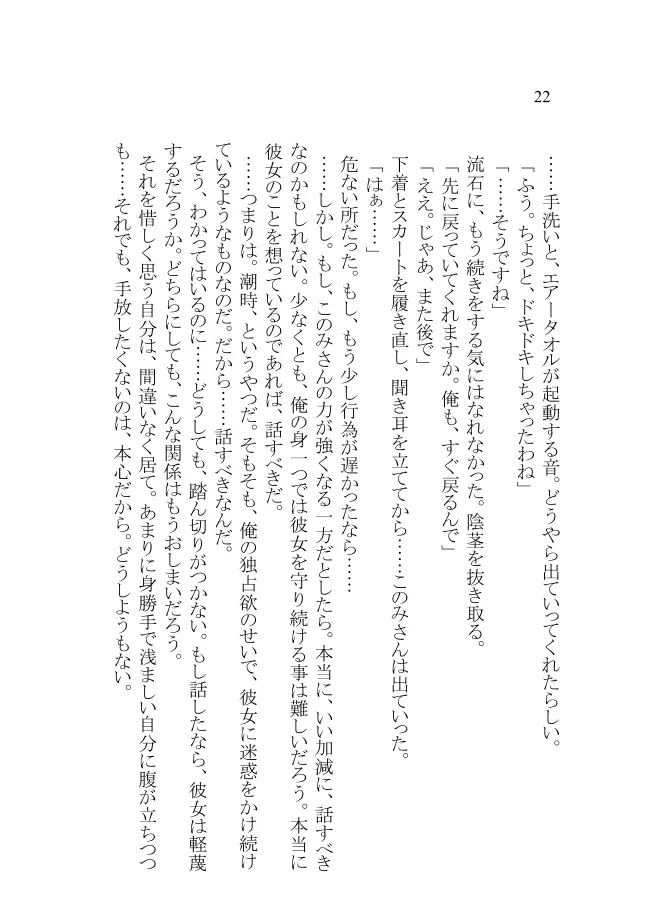 22
……手洗いと、エアータオルが起動する音。どうやら出ていってくれたらしい。
「ふう。ちょっと、ドキドキしちゃったわね」
「……そうですね」
流石に、もう続きをする気にはなれなかった。陰茎を抜き取る。
「先に戻っていてくれますか。俺も、すぐ戻るんで」
「ええ。じゃあ、また後で」
下着とスカートを履き直し、聞き耳を立ててから……このみさんは出ていった。
「はぁ……」
危ない所だった。もし、もう少し行為が遅かったなら……
……しかし。もし、このみさんの力が強くなる一方だとしたら。本当に、いい加減に、話すべき
なのかもしれない。少なくとも、俺の身一つでは彼女を守り続ける事は難しいだろう。本当に
彼女のことを想っているのであれば、話すべきだ。
……つまりは。潮時、というやつだ。そもそも、俺の独占欲のせいで、彼女に迷惑をかけ続け
ているようなものなのだ。だから……話すべきなんだ。
そう、わかってはいるのに……どうしても、踏ん切りがつかない。もし話したなら、彼女は軽蔑
するだろうか。どちらにしても、こんな関係はもうおしまいだろう。
それを惜しく思う自分は、間違いなく居て。あまりに身勝手で浅ましい自分に腹が立ちつつ
も……それでも、手放したくないのは、本心だから。どうしようもない。